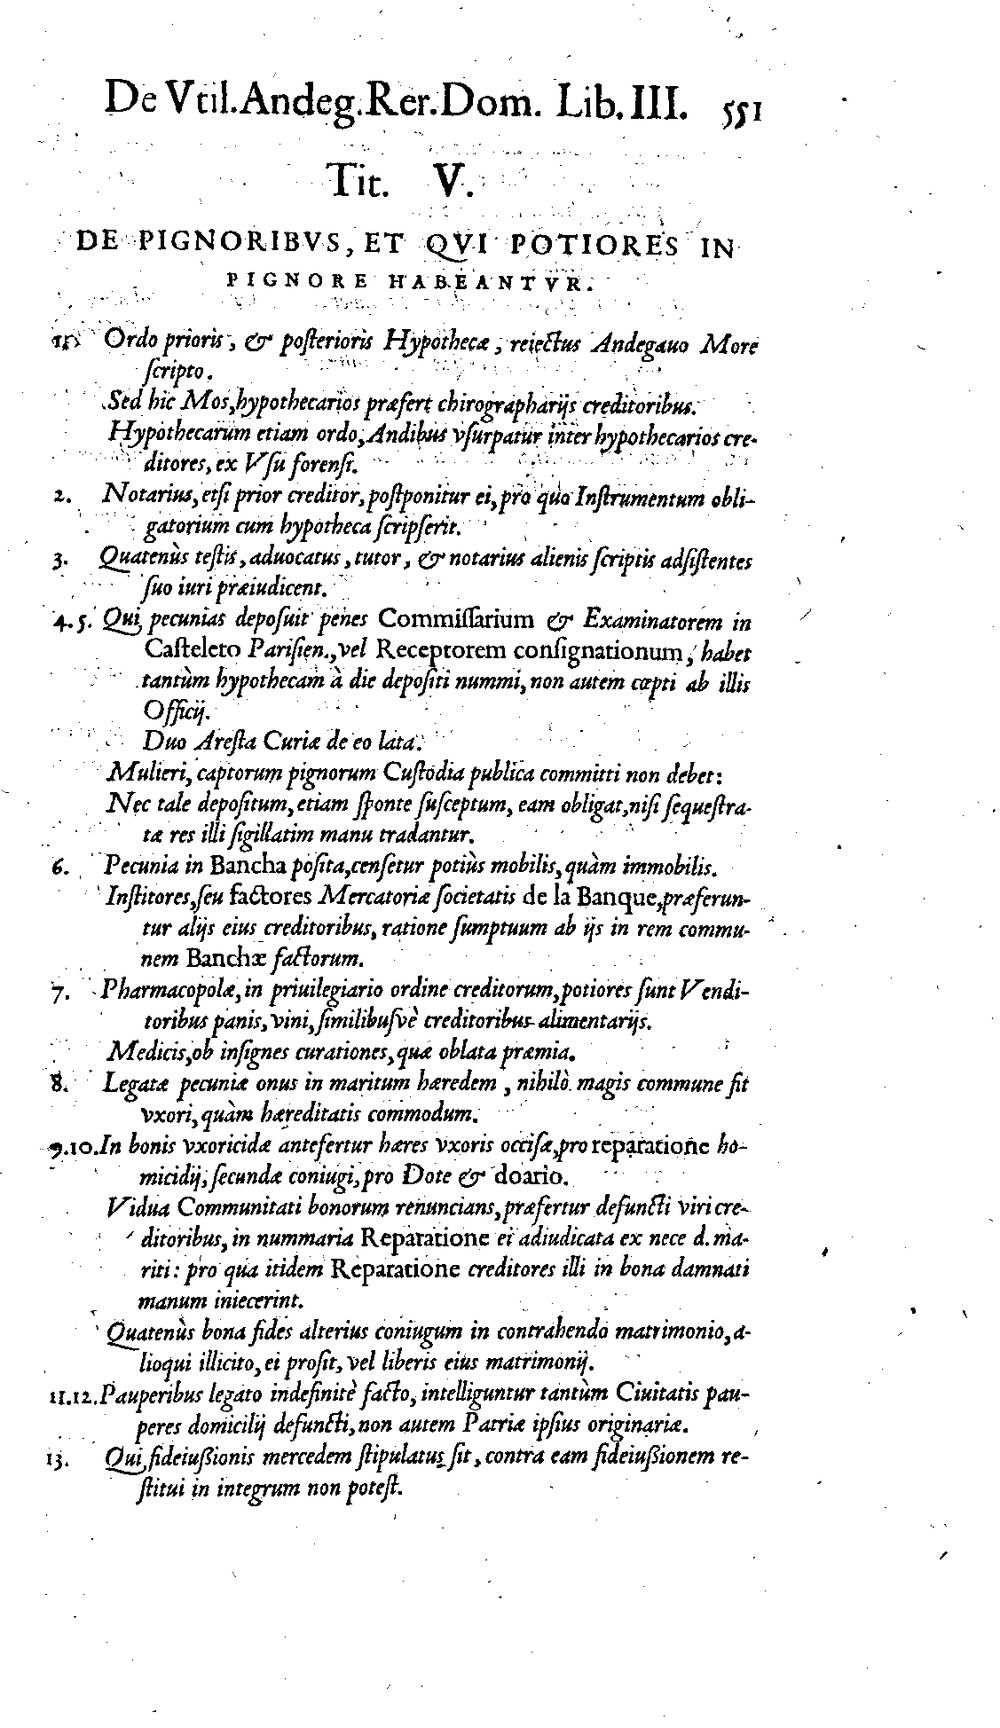 De Vtil.Andeg.Rer.Dom. Lib.III. 551
Tit. V.
DE PIGNORIBVS, ET QVI POTIORES IN
PIGNORE HABEANTVR.
Ordo prioris, & poſterioris Hypothecæ, reiectus Andegauo More
ſcripto.
Sed hic Mos, hypothecarios præfert chirographarijs creditoribus.
Hypothecarum etiam ordo, Andibus vſurpatur inter hypothecarios cre-
ditores, ex Vſu forenſi.
2. Notarius, etſi prior creditor, poſtponitur ei, pro quo Inſtrumentum obli-
gatorium cum hypotheca ſcripſerit.
3. Quatenùs teſtis, aduocatus, tutor, & notarius alienis ſcriptis adſiſtentes
ſuo iuri præiudicent.
4.5. Qui pecunias depoſuit penes Commiſſarium & Examinatorem in
Caſteleto Pariſien., vel Receptorem conſignationum, habet
tantùm hypothecam à die depoſiti nummi, non autem cœpti ab illis
Officij.
Duo Areſta Curiæ de eo lata.
Mulieri, captorum pignorum Cuſtodia publica committi non debet:
Nec tale depoſitum, etiam ſponte ſuſceptum, eam obligat, niſi ſequeſtra-
tæ res illi ſigillatim manu tradantur.
6. Pecunia in Bancha poſita, cenſetur potiùs mobilis, quàm immobilis.
Inſtitores, ſeu factores Mercatoriæ ſocietatis de la Banque, præferun-
tur alijs eius creditoribus, ratione ſumptuum ab ijs in rem commu-
nem Banchæ factorum.
7. Pharmacopolæ, in priuilegiario ordine creditorum, potiores ſunt Vendi-
toribus panis, vini, ſimilibuſvè creditoribus alimentarijs.
Medicis, ob inſignes curationes, quæ oblata præmia.
8. Legatæ pecuniæ onus in maritum hæredem, nihilò magis commune fit
vxori, quàm hæreditatis commodum.
9.10. In bonis vxoricidæ antefertur hæres vxoris occiſæ, pro reparatione ho-
micidij, ſecundæ coniugi, pro Dote & doario.
Vidua Communitati bonorum renuncians, præfertur defuncti viri cre-
ditoribus, in nummaria Reparatione ei adiudicata ex nece d. ma-
riti: pro qua itidem Reparatione creditores illi in bona damnati
manum iniecerint.
Quatenùs bona fides alterius coniugum in contrahendo matrimonio, a-
lioqui illicito, ei proſit, vel liberis eius matrimonij.
11.12. Pauperibus legato indefinitè facto, intelliguntur tantùm Ciuitatis pau-
peres domicilij defuncti, non autem Patriæ ipſius originariæ.
13. Qui fideiuſsionis mercedem ſtipulatus ſit, contra eam fideiuſsionem re-
ſtitui in integrum non poteſt.